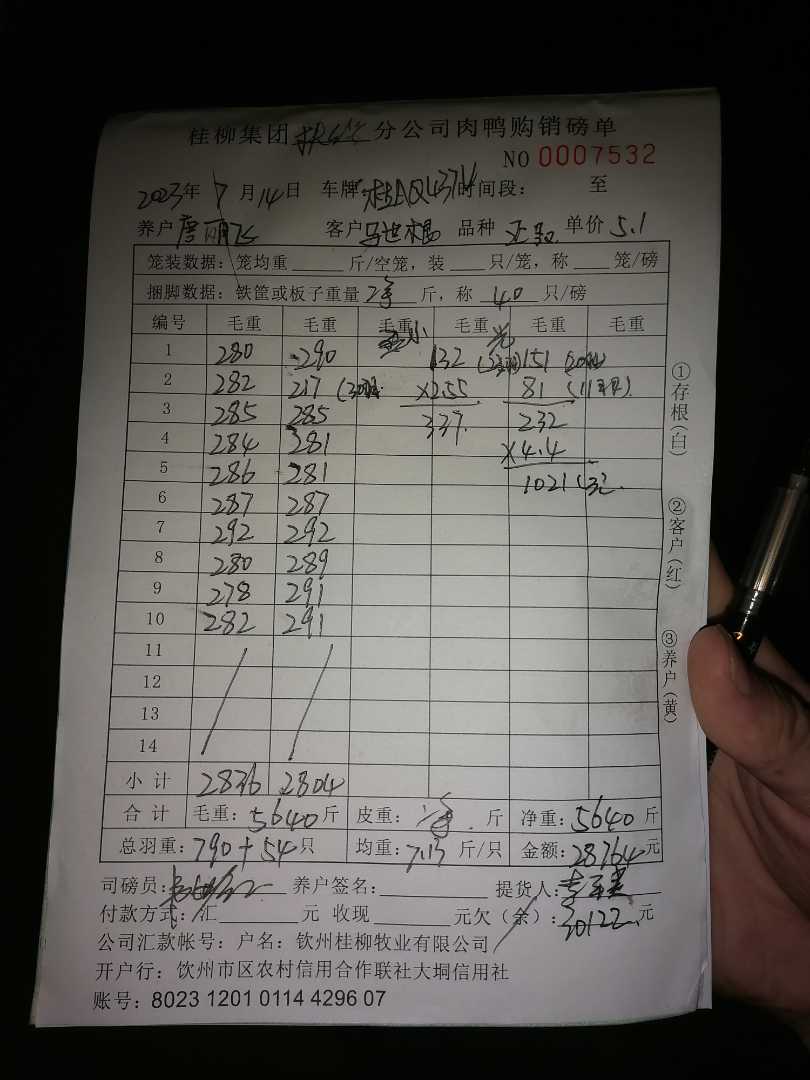 桂柳集团 分公司肉鸭购销磅单
NO 0007532
2023年 7月 14日 车牌: 时间段: 至
养户 客户 品种 单价 5.1
笼装数据: 笼均重 斤/空笼, 装 只/笼, 称 笼/磅
捆脚数据: 铁筐或板子重量 斤, 称 40 只/磅
编号 毛重 毛重 毛重 毛重 毛重 毛重
1 280 290 小 132 151
2 282 217 ×2.55 81
3 285 285 337. 232
4 284 281 ×4.4
5 286 281 1021
6 287 287
7 292 292
8 280 289
9 278 291
10 282 291
11
12
13
14
小计 2836 2804
合计 毛重: 5640斤 皮重: 斤 净重: 5640斤
总羽重: 790+54只 均重: 7.13 斤/只 金额: 28764元
司磅员: 养户签名: 提货人:
付款方式: 汇 元 收现 元欠(余): 30122元
公司汇款帐号: 户名: 钦州桂柳牧业有限公司
开户行: 钦州市区农村信用合作联社大垌信用社
账号: 8023 1201 0114 4296 07
①存根(白)
②客户(红)
③养户(黄)